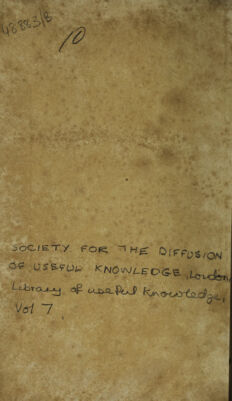 48883/B
10
SOCIETY FOR THE DIFFUSION
OF USEFUL KNOWLEDGE, London
Library of useful Knowledge,
Vol 7.